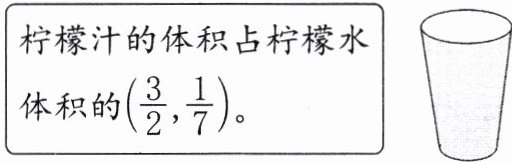 柠檬汁的体积占柠檬水
体积的(3/2,1/7)。